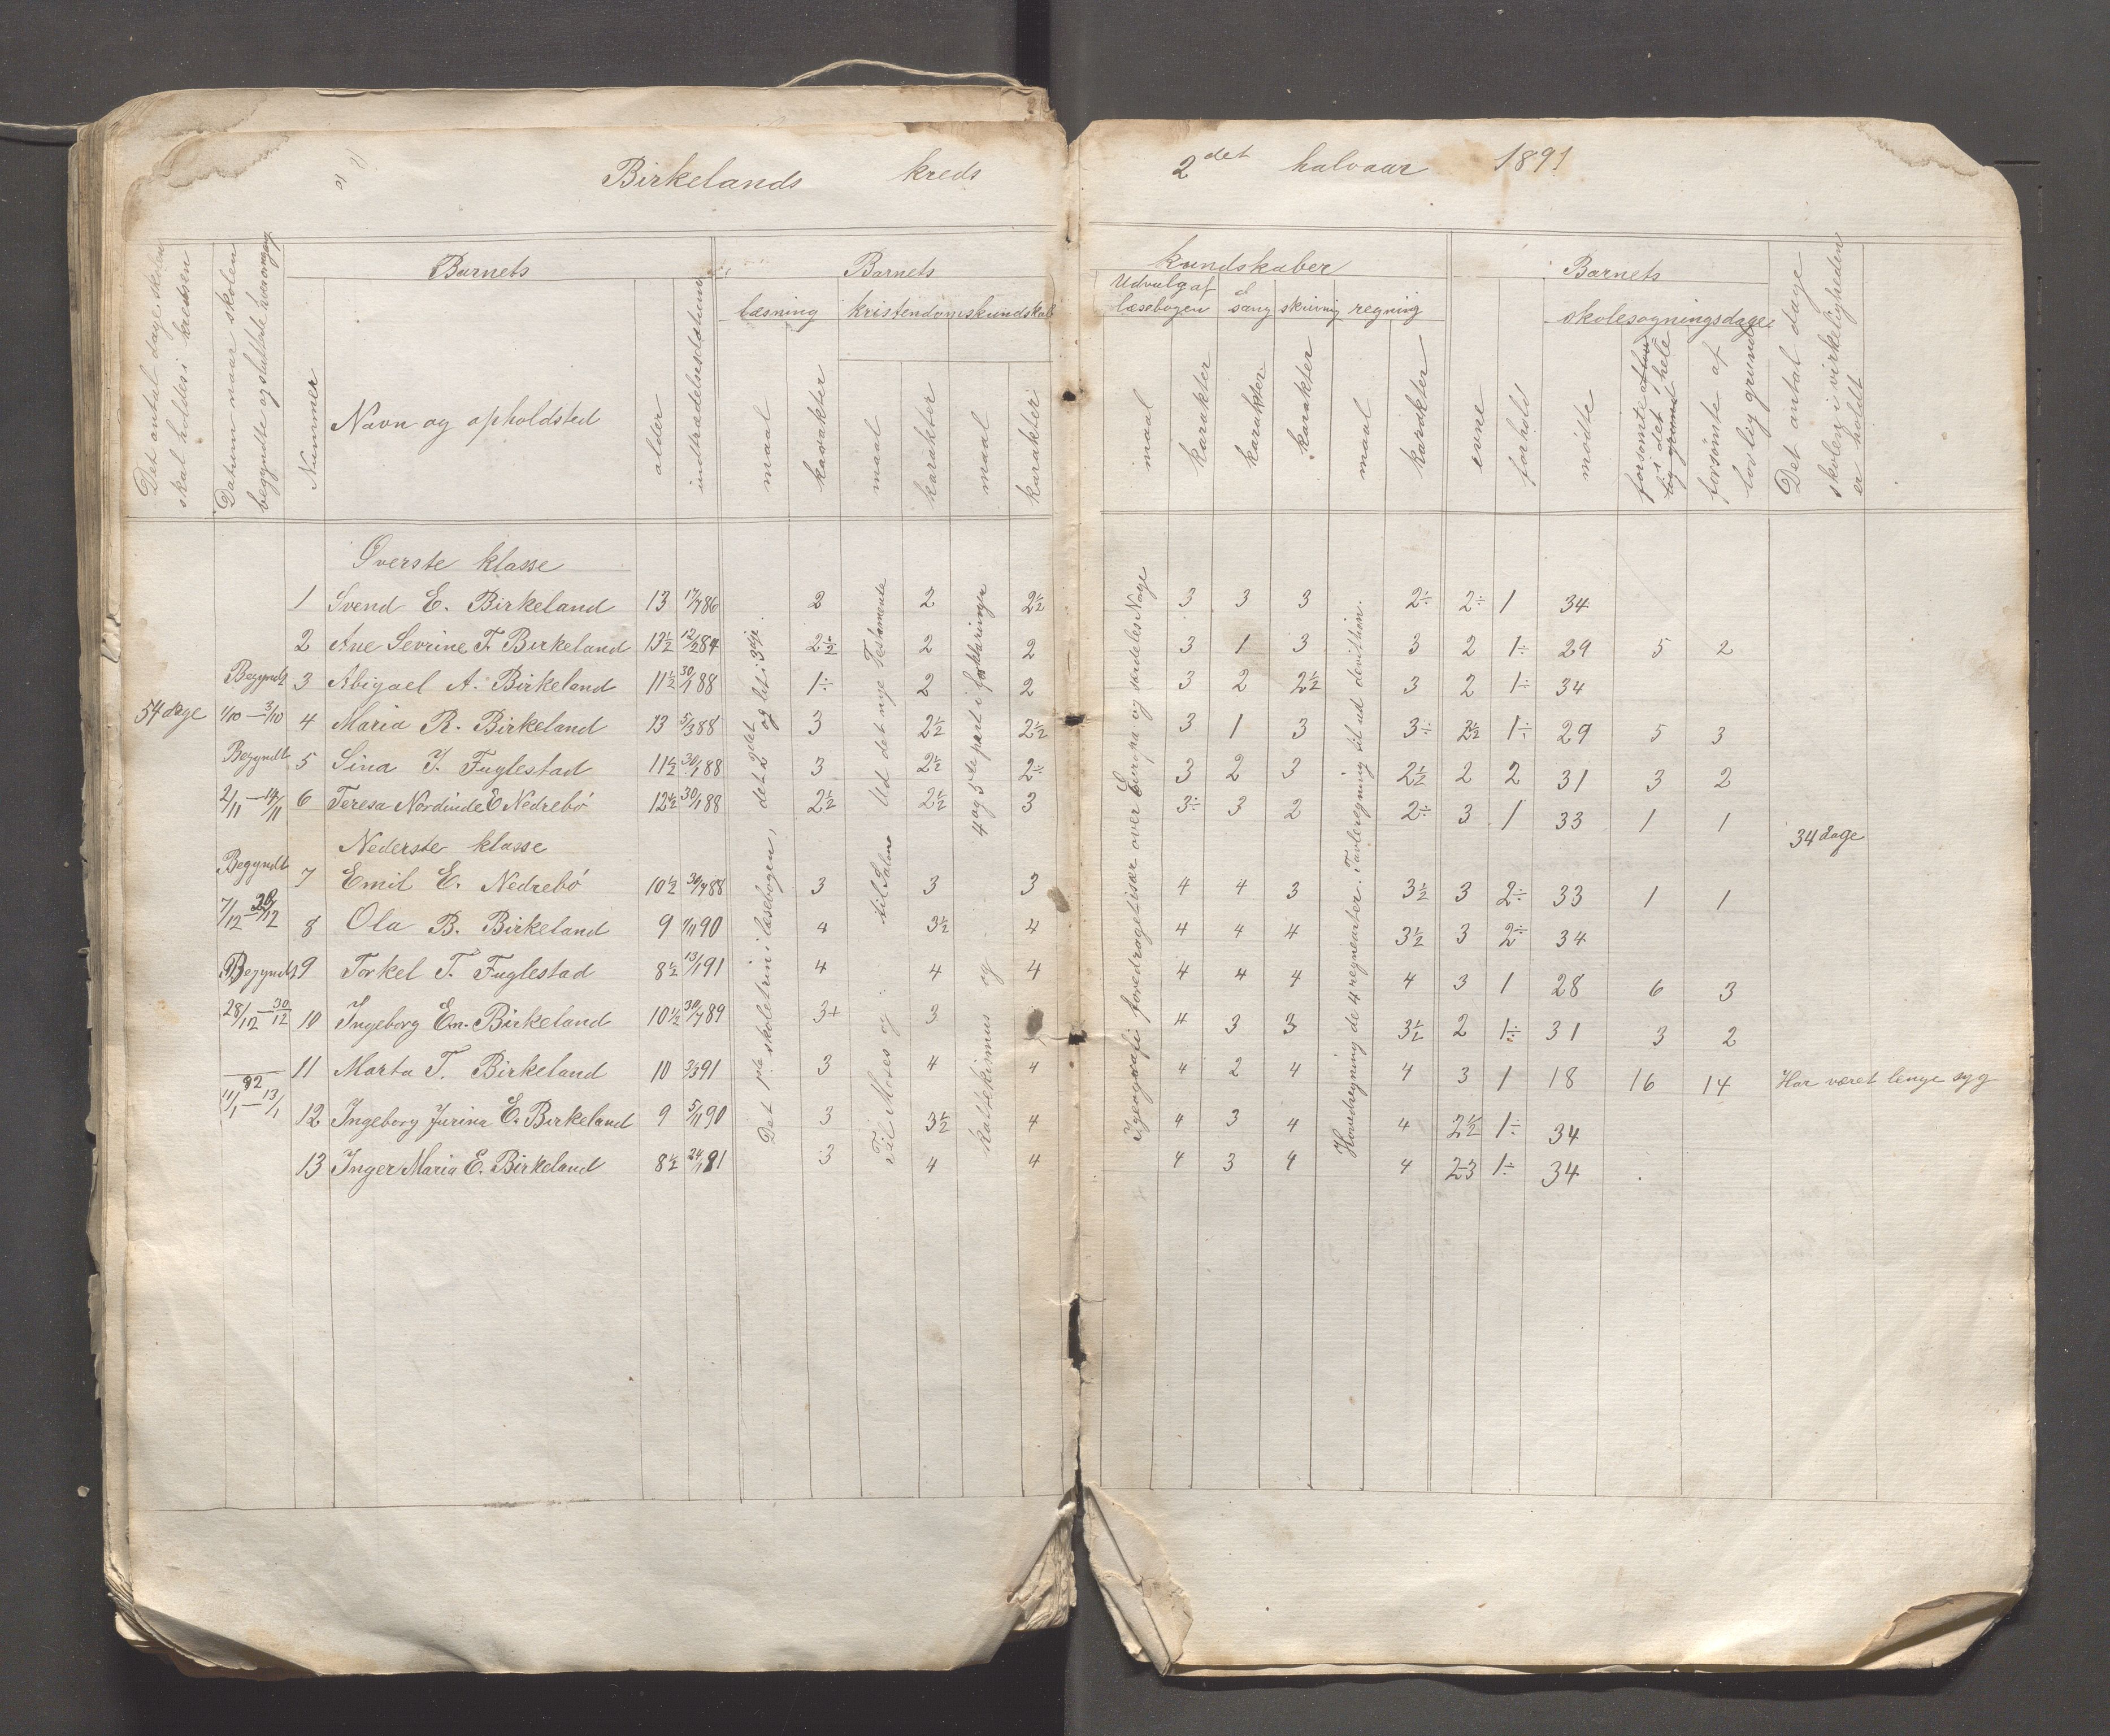 Birkelands kreds 2det halvaar 1891
Det antal dage skolen skal holdes i kredsen
Datum naar skolen begyndte og sluttede hver omgang
Nummer
Barnets
Navn og opholdsted
alder
indtrædelsesdatum
Barnets kundskaber
læsning
maal
karakter
kristendomskundskab
maal
karakter
maal
karakter
Udvalg af læsebogen
maal
karakter
sang
karakter
skrivnig
karakter
regning
maal
karakter
evne
forhold
Barnets
skolesøgningsdage
mødte
forsømte i det hele
forsømte af lovlig grund
Det antal dage skolen i virkeligheden er holdt
54 dage
Begyndt
1/10 — 3/10
Begyndt
2/11 — 14/11
Begyndt
7/12 —
Begyndt
28/12 — 30/12
92
11/1 — 13/1
Det 1ste skoletrin i læsebogen, det 2det og lit i 3die.
Til Moses og til Salomo Ud det nye Testamente
katekismus og 4 og 5te part i forklaringen
I geografi foredraget især over Europa og særdeles Norge
Hovedregning de 4 regnearter. Tavleregning til ud devithion.
Øverste klasse
1 Svend E. Birkeland 13 17/7 86 2 2 2½ 3 3 3 2÷ 2÷ 1 34
2 Ane Sevrine T. Birkeland 13½ 12/2 84 2½ 2 2 3 1 3 3 2 1÷ 29 5 2
3 Abigael A. Birkeland 11½ 30/1 88 1÷ 2 2 3 2 2½ 3 2 1÷ 34
4 Maria R. Birkeland 13 5/3 88 3 2½ 2½ 3 1 3 3÷ 2½ 1÷ 29 5 3
5 Sina J. Fuglestad 11½ 30/1 88 3 2½ 2÷ 3 2 3 2½ 2 2 31 3 2
6 Teresa Nordinde E Nedrebö 12½ 30/1 88 2½ 2½ 3 3÷ 3 2 2÷ 3 1 33 1 1
34 dage
Nederste klasse
7 Emil E. Nedrebö 10½ 30/7 88 3 3 3 4 4 3 3½ 3 2÷ 33 1 1
8 Ola B. Birkeland 9 90 4 3½ 4 4 4 4 3½ 3 2÷ 34
9 Torkel T. Fuglestad 8½ 13/1 91 4 4 4 4 4 4 4 3 1 28 6 3
10 Ingeborg Em. Birkeland 10½ 30/7 89 3+ 3 4 3 3 3½ 2 1÷ 31 3 2
11 Marta T. Birkeland 10 91 3 4 4 4 2 4 4 3 1 18 16 14 Har været lenge syg
12 Ingeborg Jurina E. Birkeland 9 5/11 90 3 3½ 4 4 3 4 4 2½ 1÷ 34
13 Inger Maria E. Birkeland 8½ 24/1 91 3 4 4 4 3 4 4 2-3 1÷ 34